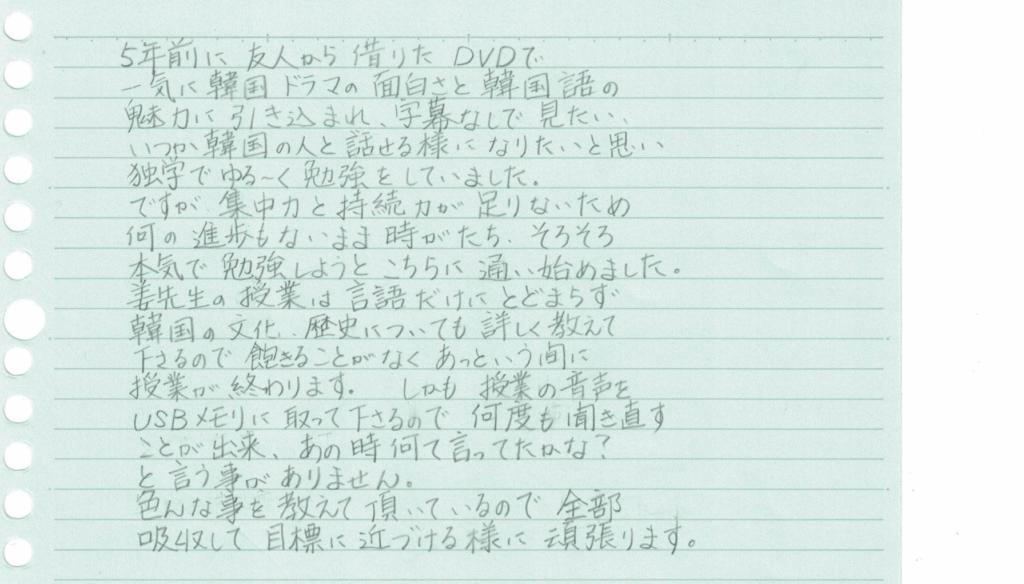 5年前に友人から借りたDVDで
一気に韓国ドラマの面白さと韓国語の
魅力に引き込まれ、字幕なしで見たい、
いつか韓国の人と話せる様になりたいと思い
独学でゆる〜く勉強をしていました。
ですが、集中力と持続力が足りないため
何の進歩もないまま時がたち、そろそろ
本気で勉強しようとこちらに通い始めました。
姜先生の授業は言語だけにとどまらず
韓国の文化、歴史についても詳しく教えて
下さるので飽きることがなくあっという間に
授業が終わります。 しかも授業の音声を
USBメモリに取って下さるので何度も聞き直す
ことが出来、あの時何て言ってたかな?
と言う事がありません。
色んな事を教えて頂いているので全部
吸収して目標に近づける様に頑張ります。